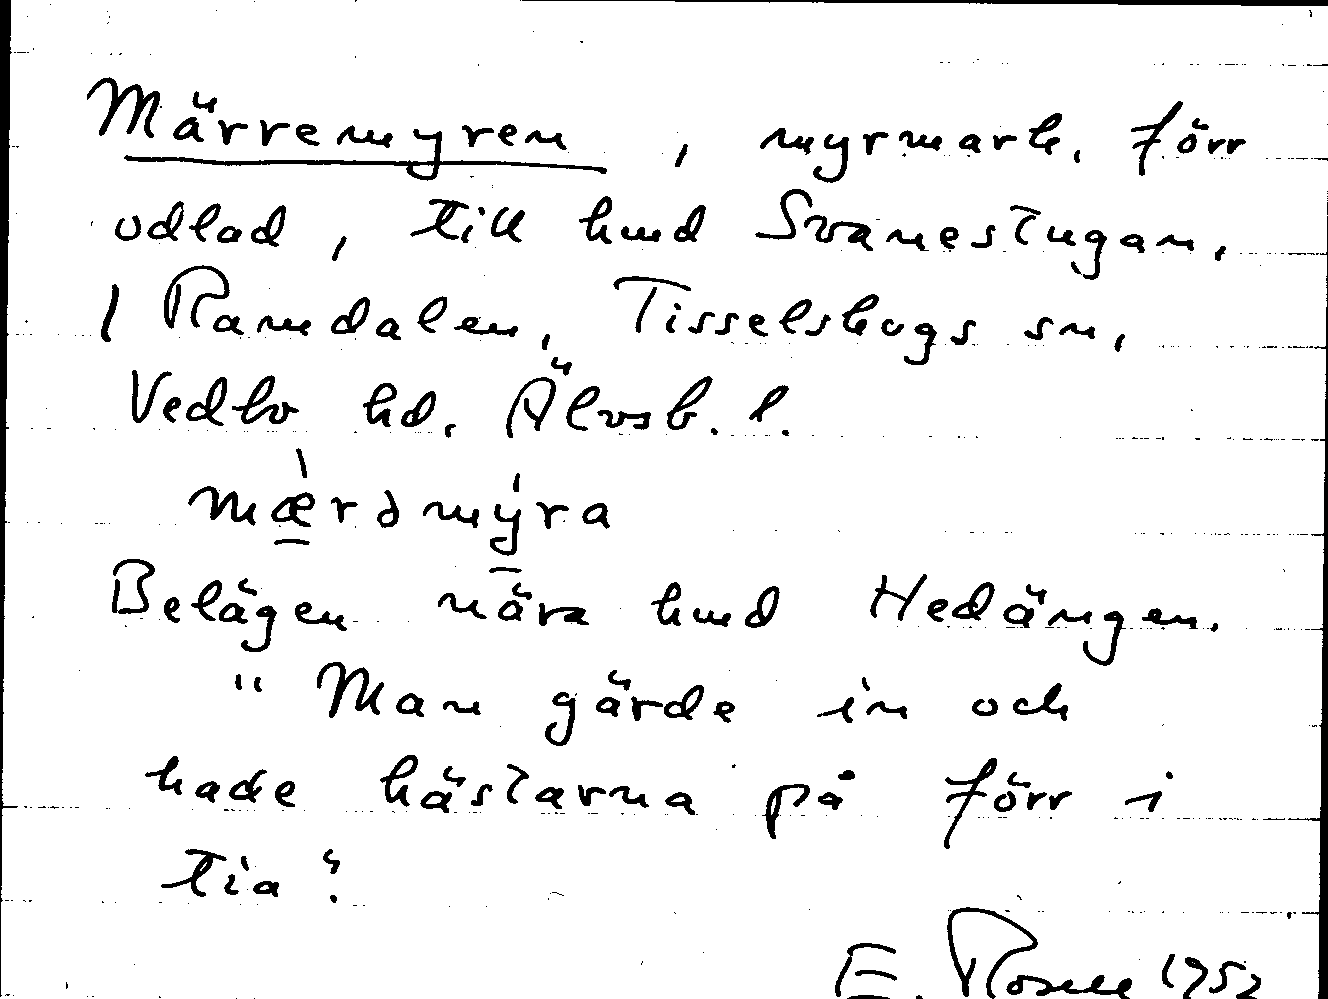 Märremyren, myrmark, förr
odlad, till hmd Svanestugan,
1 Ramdalen, Tisselskogs sn,
Vedbo hd. Älvsb. l.
mæ̀rəmýra
Belägen nära hmd Hedängen.
"Man gärde in och
hade hästarna på förr i
tia".
E. 1952